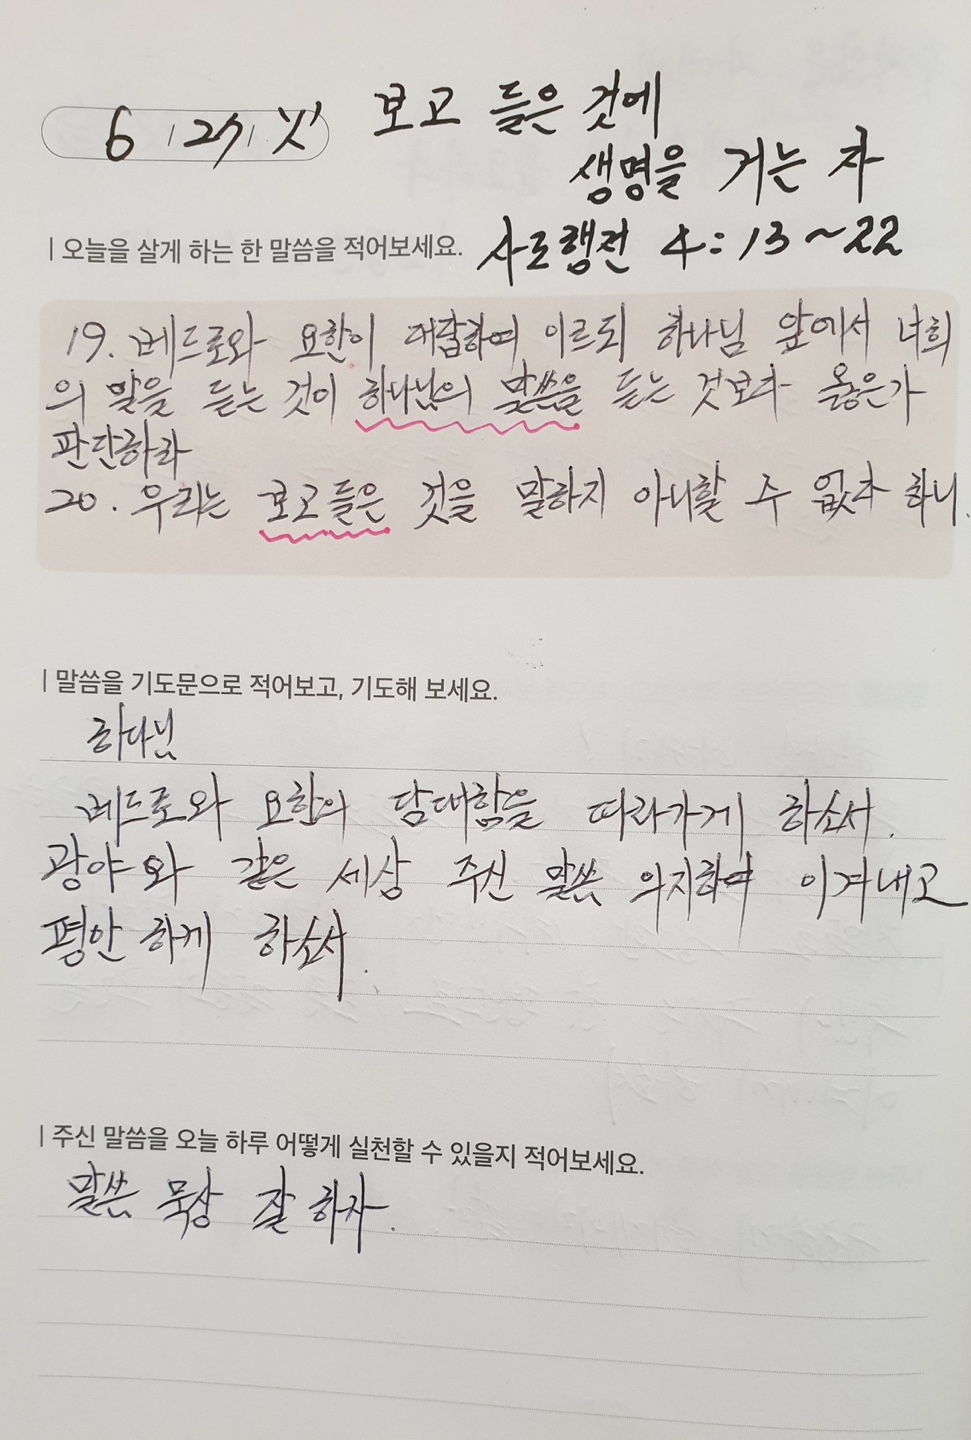 6 / 27 / 火 보고 들은 것에
생명을 거는 자
| 오늘을 살게 하는 한 말씀을 적어보세요. 사도행전 4:13~22
19. 베드로와 요한이 대답하여 이르되 하나님 앞에서 너희
의 말을 듣는 것이 하나님의 말씀을 듣는 것보다 옳은가
판단하라
20. 우리는 보고들은 것을 말하지 아니할 수 없다 하니.
| 말씀을 기도문으로 적어보고, 기도해 보세요.
하나님
베드로와 요한의 담대함을 따라가게 하소서.
광야와 같은 세상 주신 말씀 의지하여 이겨내고
평안하게 하소서.
| 주신 말씀을 오늘 하루 어떻게 실천할 수 있을지 적어보세요.
말씀 묵상 잘 하자.